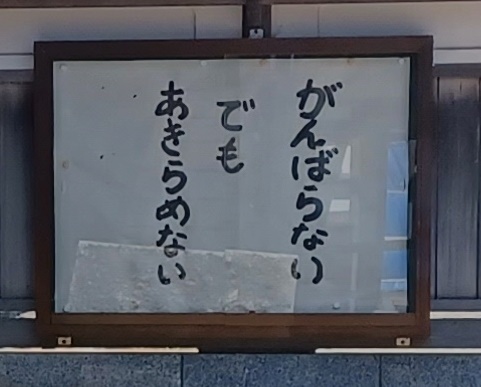 がんばらない
でも
あきらめない